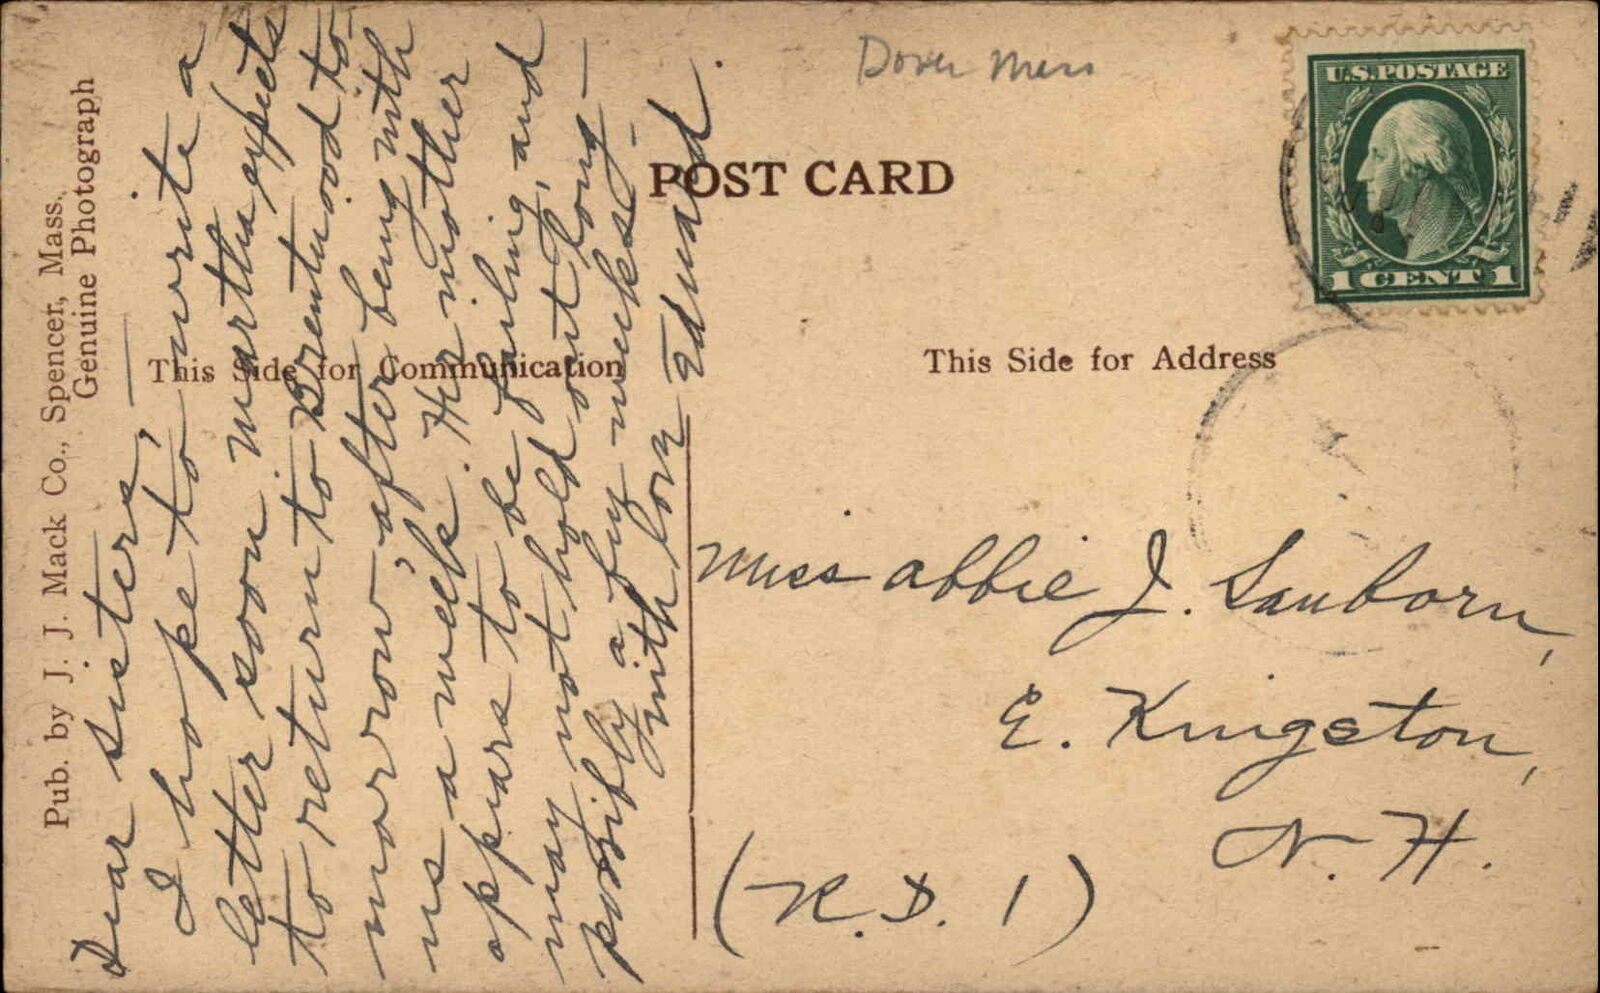 Pub. by J. J. Mack Co., Spencer, Mass.
Genuine Photograph
Dover Mass
U.S. POSTAGE
1 CENT 1
POST CARD
This Side for Communication
This Side for Address
Dear sisters, —
I hope to write a
letter soon. Martha expects
to return to Brentwood to-
morrow, after being with
us a week. Her mother
appears to be failing, and
may not hold out long —
possibly a few weeks. —
With love Edward.
Miss Abbie J. Sanborn,
E. Kingston,
N. H.
(R. D. 1)